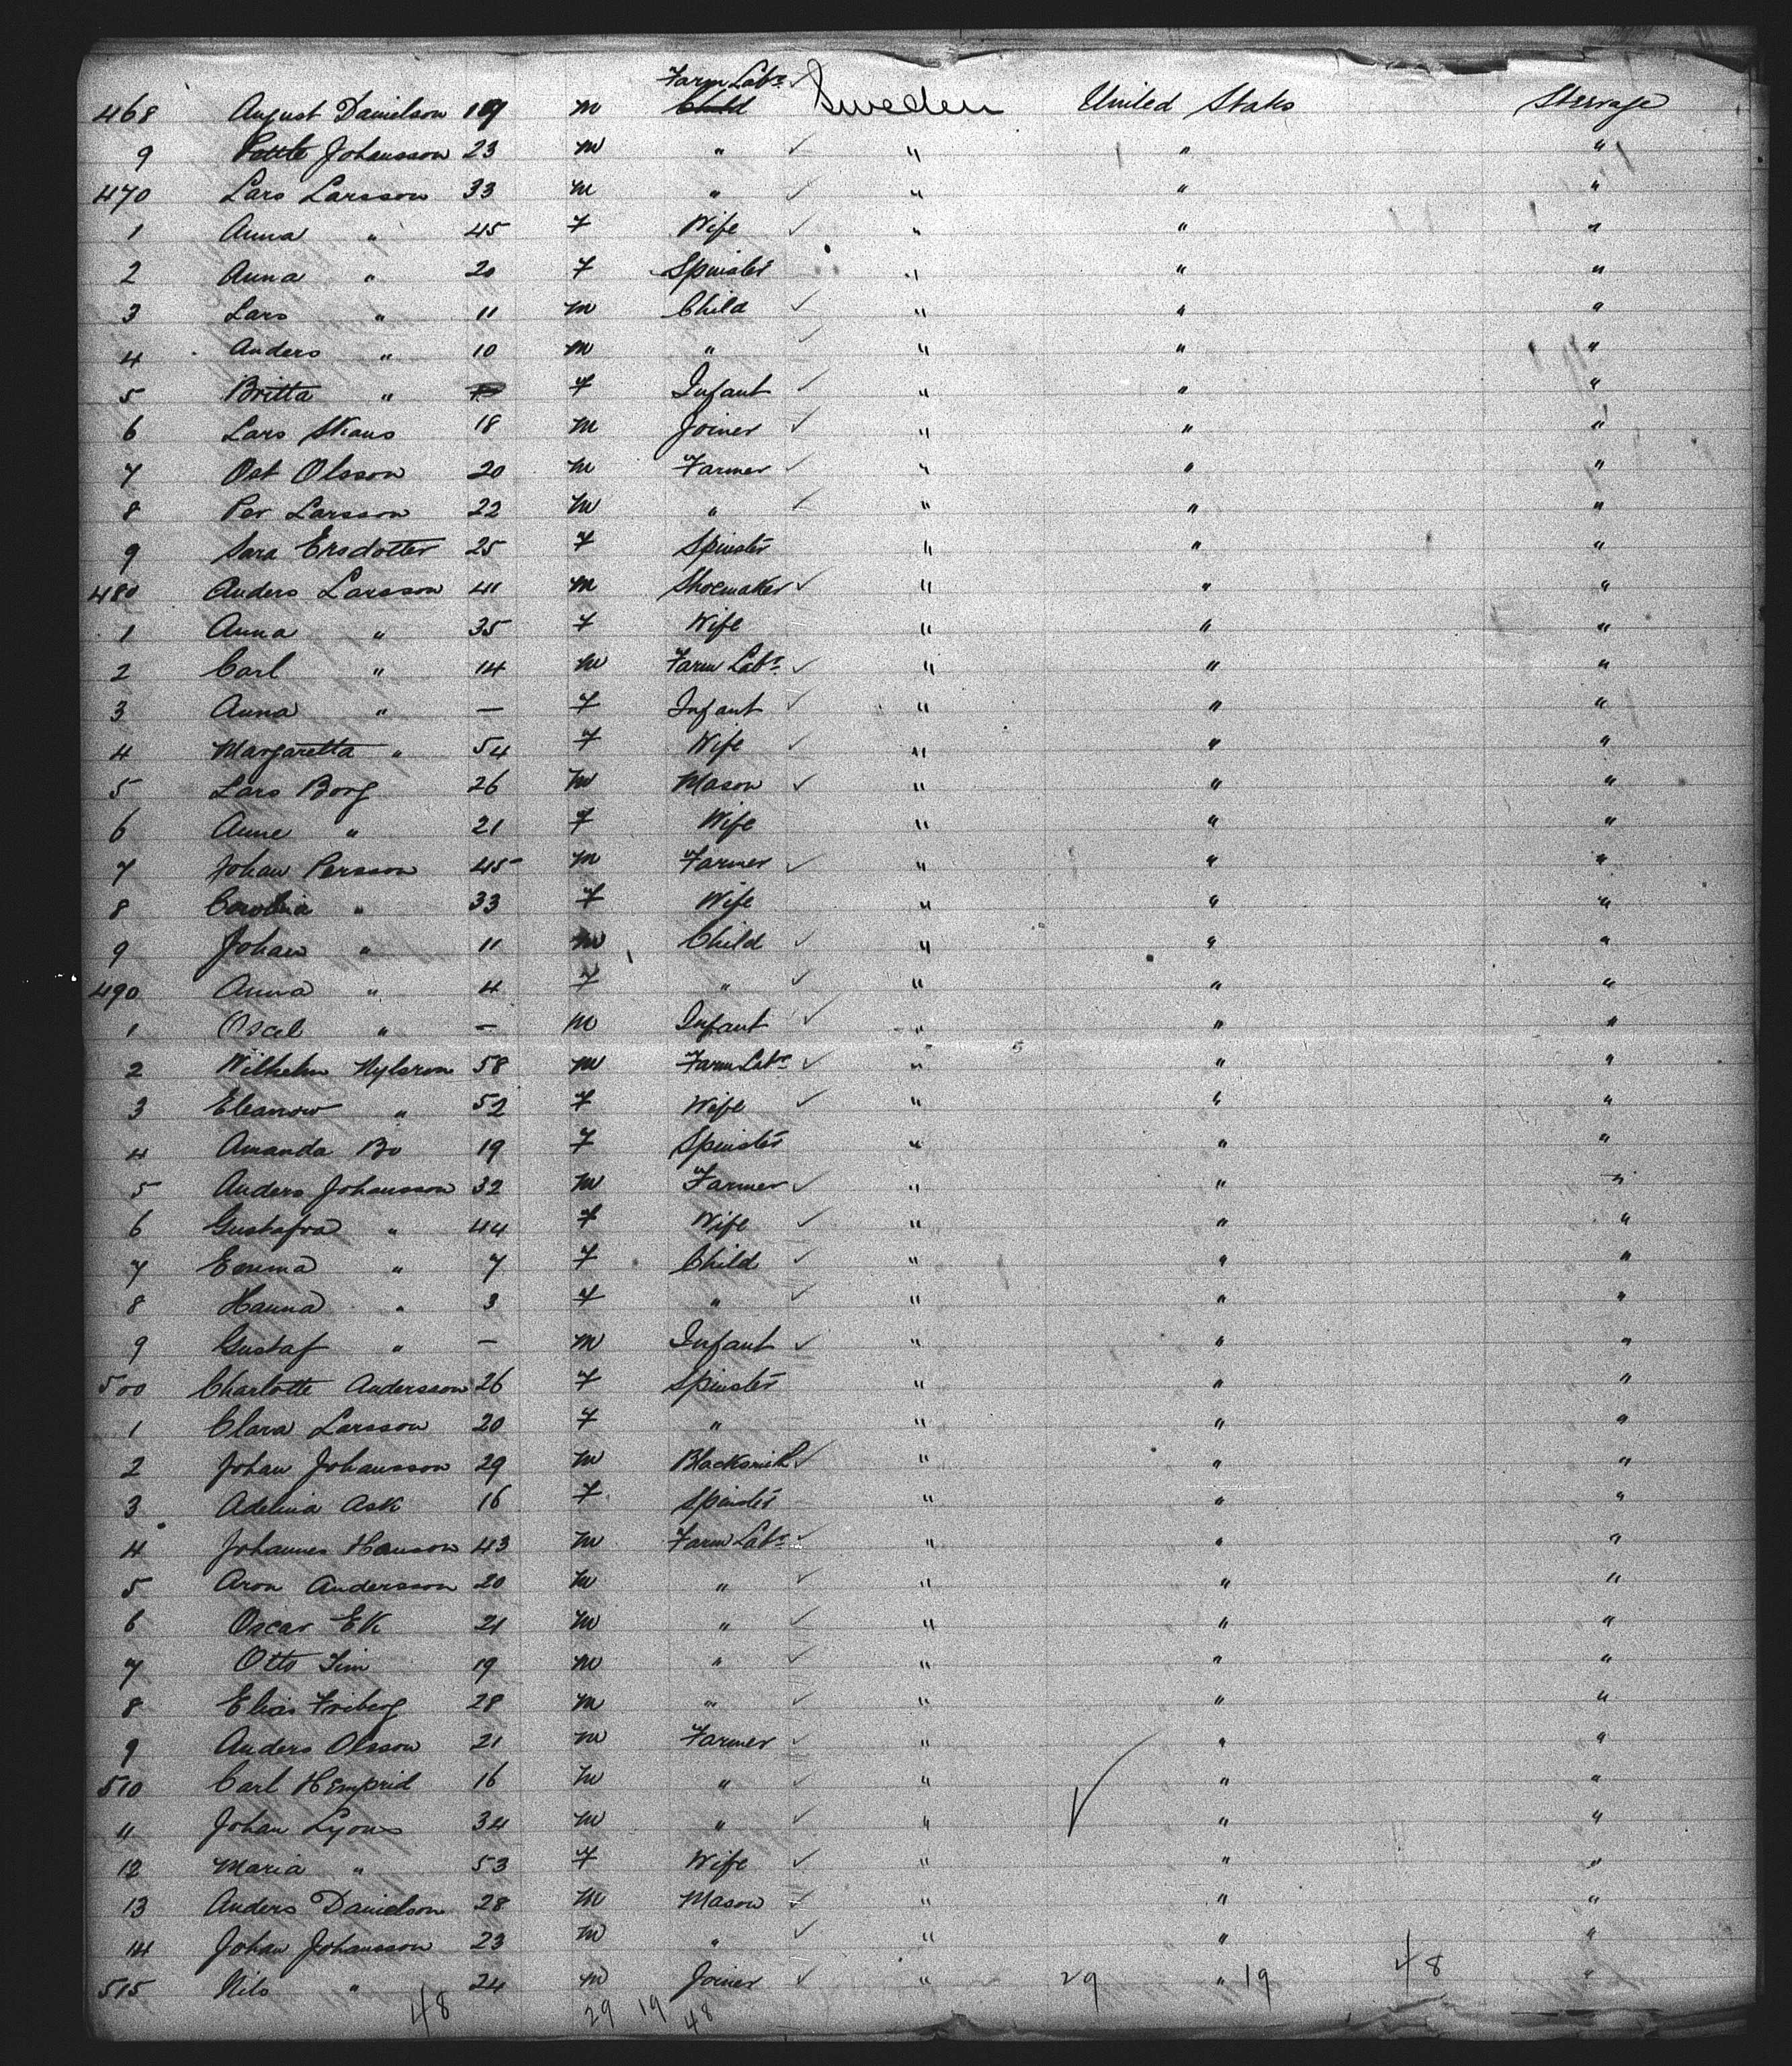 Farm Labr
468 August Danielson 19 m Child Sweden United States Steerage
9 Johansson 23 m " " " "
470 Lars Larsson 33 m " " " "
1 Anna " 45 F Wife " " "
2 Anna " 20 F Spinster " " "
3 Lars " 11 m Child " " "
4 Anders " 10 m " " " "
5 Britta " F Infant " " "
6 Lars Skans 18 m Joiner " " "
7 Ost Olsson 20 m Farmer " " "
8 Per Larsson 22 m " " " "
9 Sara Ersdotter 25 F Spinster " " "
480 Anders Larsson 41 m Shoemaker " " "
1 Anna " 35 F Wife " " "
2 Carl " 14 m Farm Labr " " "
3 Anna " — F Infant " " "
4 Margaretta " 54 F Wife " " "
5 Lars Borg 26 m Mason " " "
6 Anne " 21 F Wife " " "
7 Johan Persson 45 m Farmer " " "
8 Carolina " 33 F Wife " " "
9 Johan " 11 m Child " " "
490 Anna " 4 F " " " "
1 Oscel " — m Infant " " "
2 Wilhelm Nylsron 58 m Farm Labr " " "
3 Eleanow " 52 F Wife " " "
4 Amanda Bo 19 F Spinster " " "
5 Anders Johansson 32 m Farmer " " "
6 Gustafva " 44 F Wife " " "
7 Emma " 7 F Child " " "
8 Hanna " 3 F " " " "
9 Gustaf " — m Infant " " "
500 Charlotte Andersson 26 F Spinster " " "
1 Clara Larsson 20 F " " " "
2 Johan Johansson 29 m Blacksmith " " "
3 Adelina Ask 16 F Spinster " " "
4 Johannes Hanson 43 m Farm Labr " " "
5 Aron Andersson 20 m " " " "
6 Oscar Ek 21 m " " " "
7 Otto Tim 19 m " " " "
8 Elias Friberg 28 m " " " "
9 Anders Olsson 21 m Farmer " " "
510 Carl Hemprid 16 m " " " "
11 Johan Lyons 34 m " " " "
12 Maria " 53 F Wife " " "
13 Anders Danielson 28 m Mason " " "
14 Johan Johansson 23 m " " " "
515 Nils " 24 m Joiner " 29 " 19 48 "
48 29 19 48